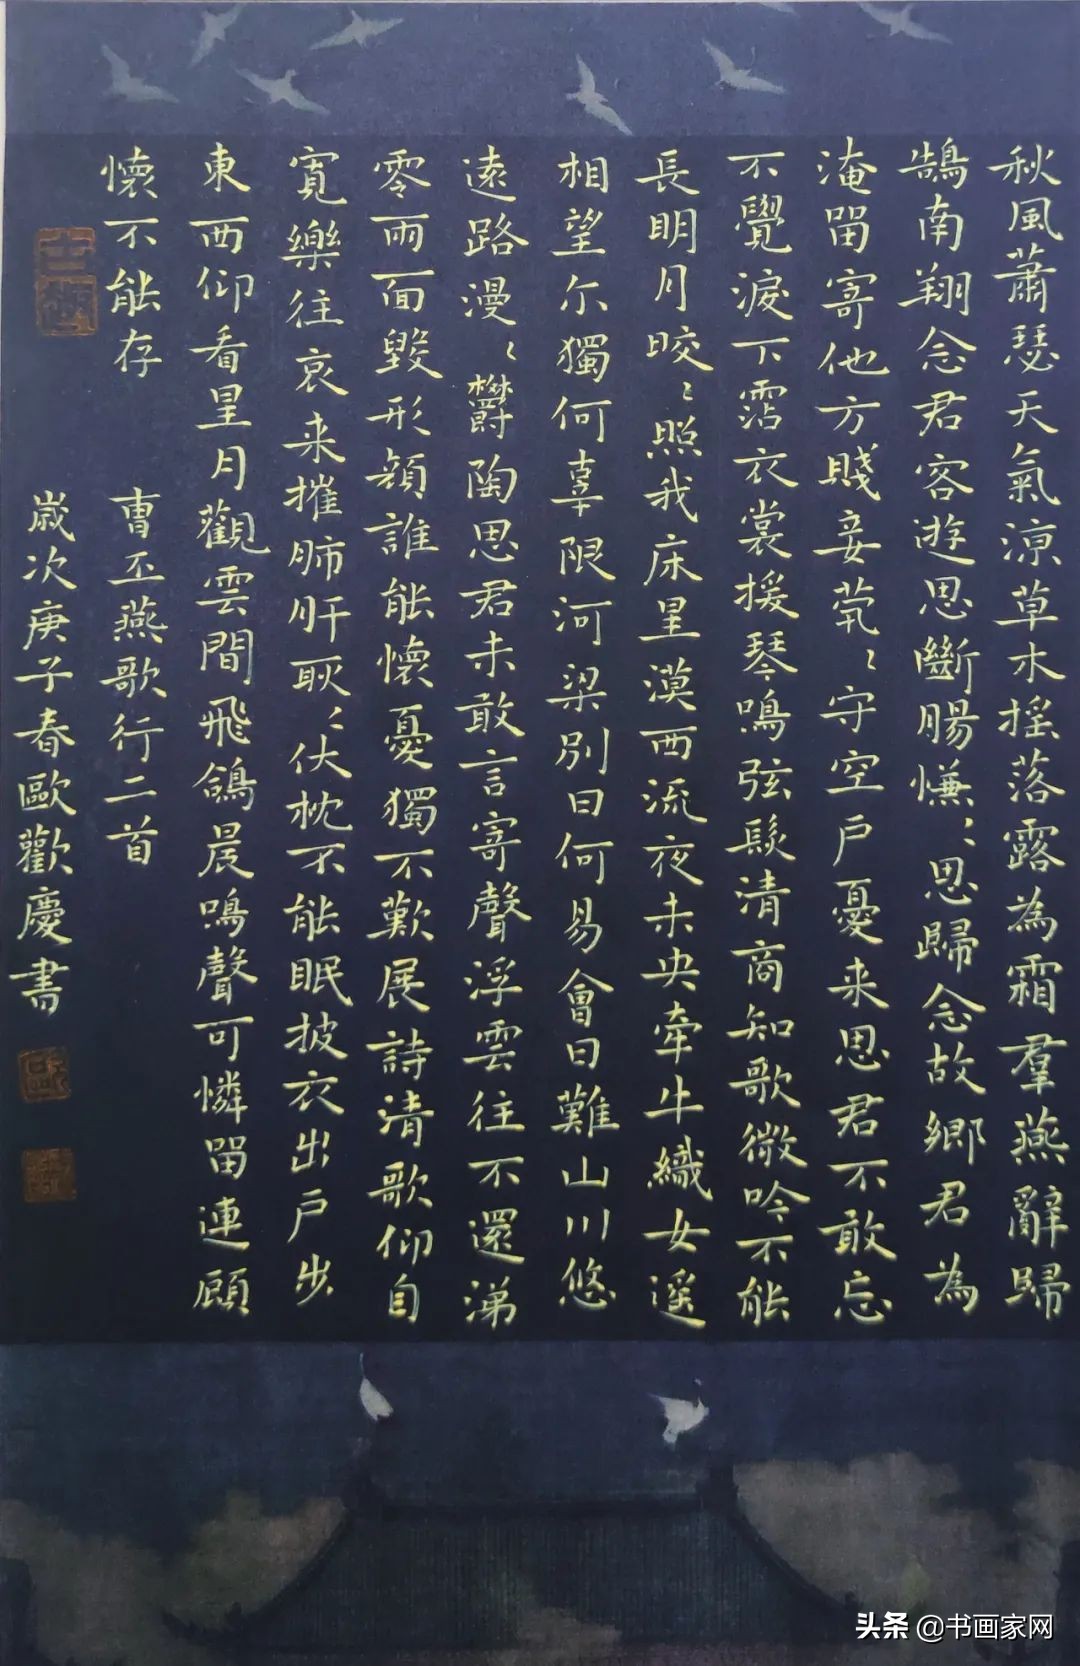 秋風蕭瑟天氣涼草木搖落露為霜羣燕辭歸
鵠南翔念君客遊思斷腸慊〻思歸念故鄉君為
淹留寄他方賤妾茕〻守空戶憂来思君不敢忘
不覺淚下霑衣裳援琴鳴弦髮清商知歌微吟不能
長明月皎〻照我床星漢西流夜未央牽牛織女遥
相望尔獨何辜限河梁別日何易會日難山川悠
遠路漫〻欝陶思君未敢言寄聲浮雲往不還涕
零雨面毀形顏誰能懷憂獨不歎展詩清歌仰自
寬樂往哀来摧肺肝耿〻伏枕不能眠披衣出戶步
東西仰看星月觀雲間飛鴿晨鳴聲可憐留連顧
懷不能存
曹丕燕歌行二首
歲次庚子春歐歡慶書
头条 @书画家网